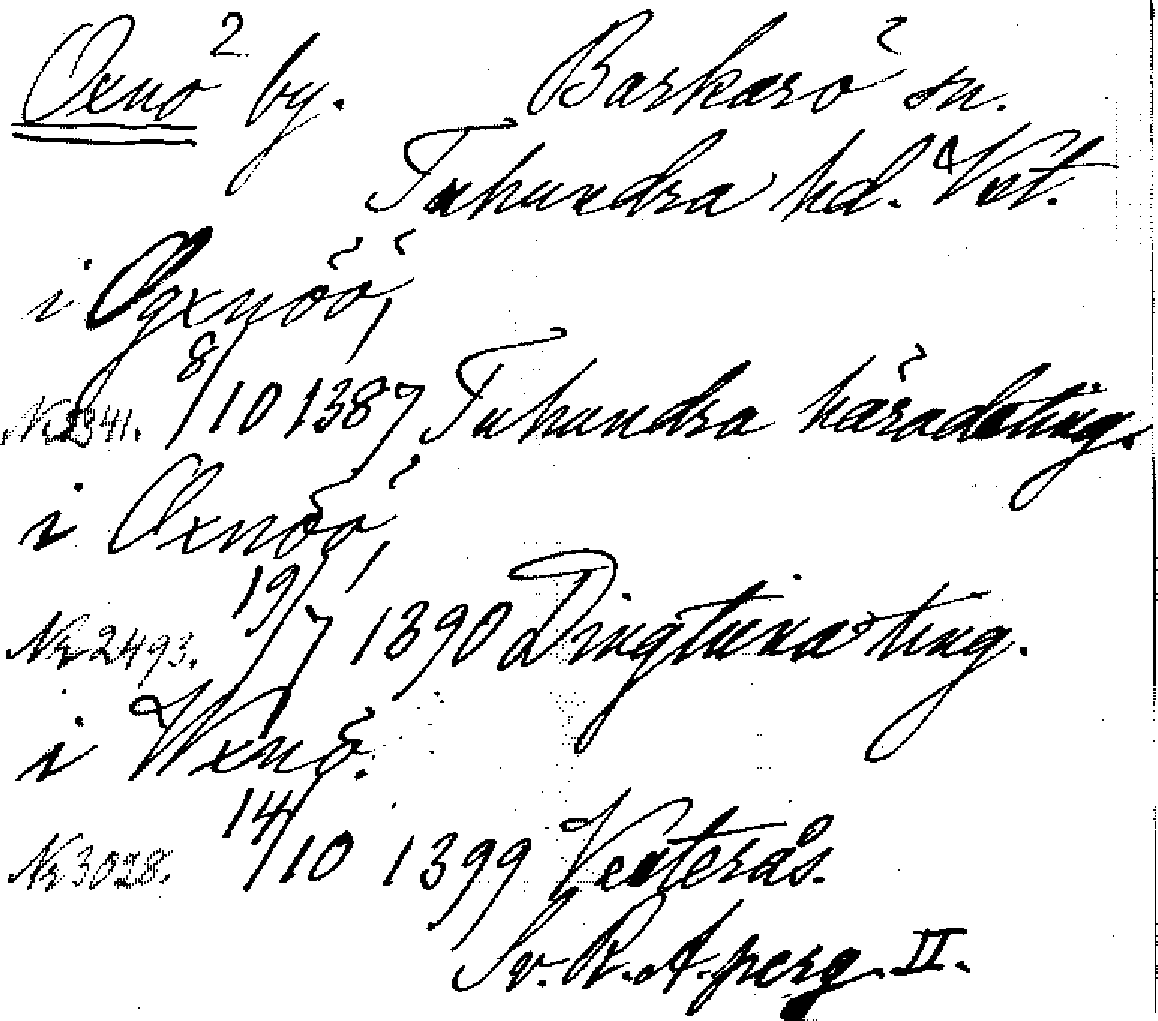 Oxnö by. Barkarö sn.
Tuhundra hd. Vst.
i Ogxnöö,
Nr 2341. 8/10 1387 Tuhundra häradsting.
i Oxnöö,
Nr 2493. 19/7 1390 Dingtuna ting.
i Wxnö.
Nr 3028. 14/10 1399 Vesterås.
Sv. R. A. perg. II.